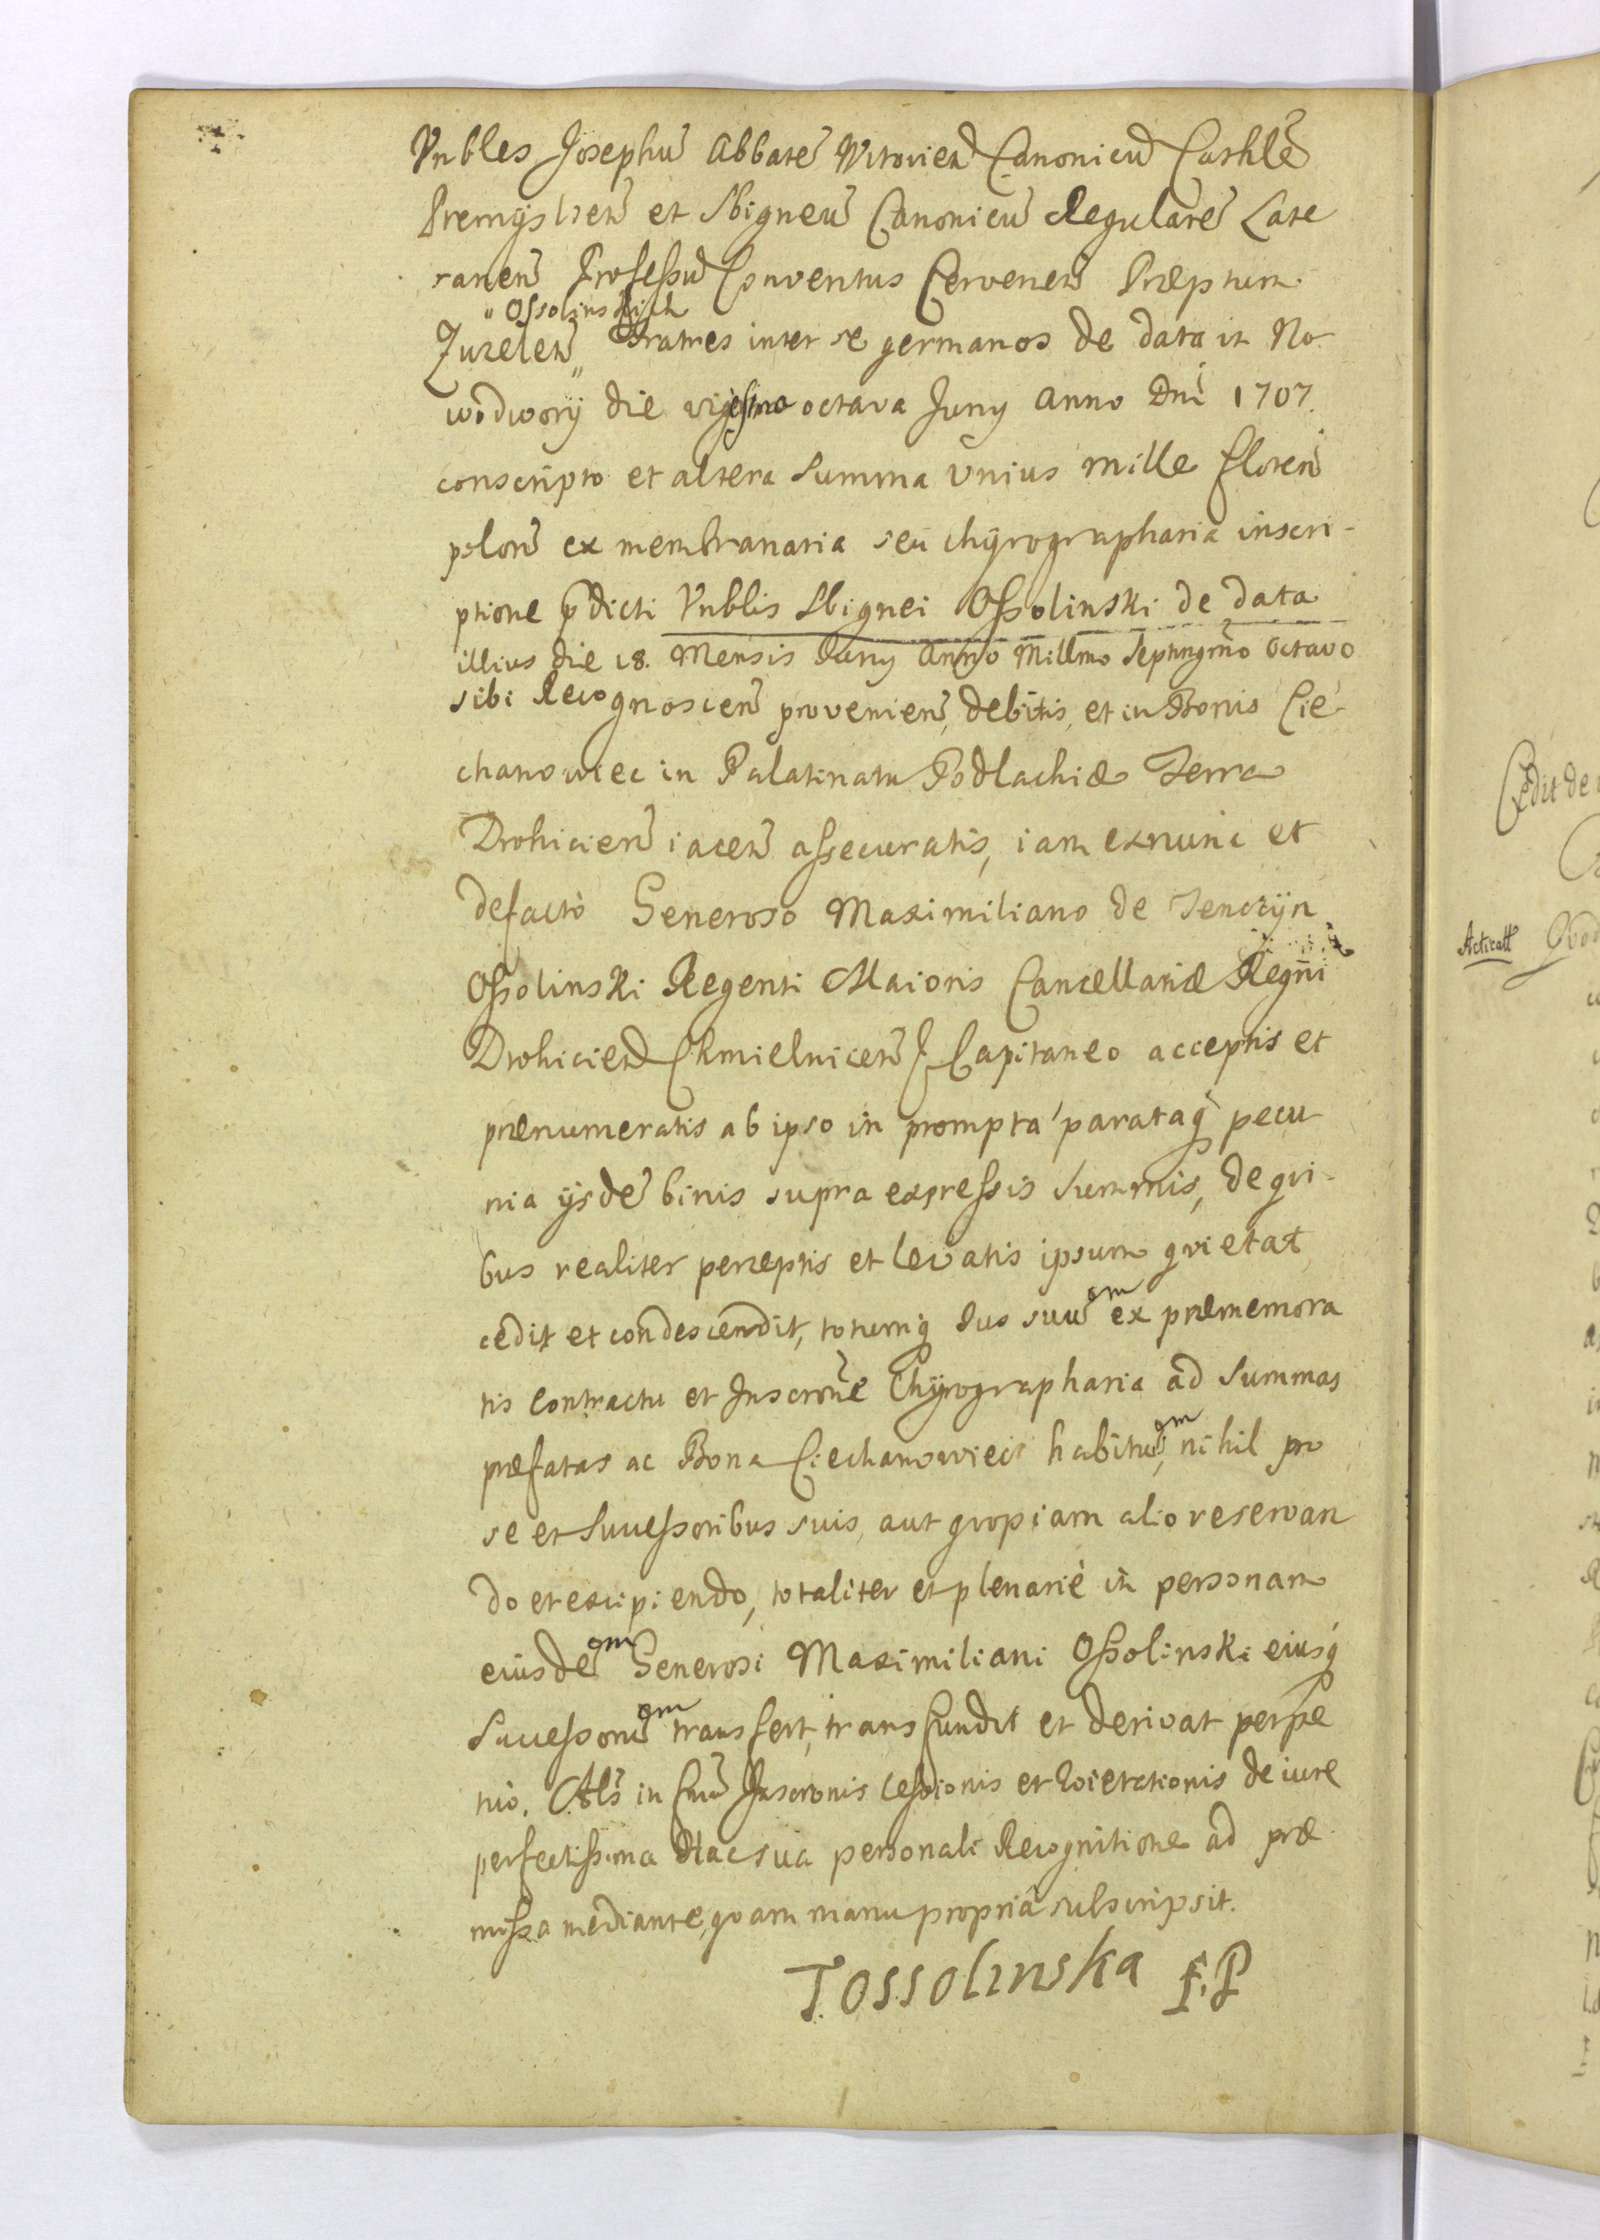 Vnbles Josephū Abbatē Witovień Canonicū Cathlē
Premysliēn et Sbigneū Canonicū Regularē Late
ranēn Professū Conventus Cervenēn Præptum
" Ossolinskich
Zuzelēn „ Fratres inter se germanos de data in No
wodwory die vigesima octava Juny Anno Dnī 1707.
conscripto et altera Summa Vnius mille florēn
polon̄ ex membranaria seu chyrographaria inscri-
ptione p̄dicti Vnblis Sbignei Ossolinski de data
illius die 18. Mensis Juny Anno Millmo Septingmo Octavo
sibi Recognoscēn provenieñ, debitis, et in Bonis Cie-
chanowiec in Palatinatu Podlachiæ Terra
Drohiciēn iacēn assecuratis, iam exnunc et
defactò Generoso Maximiliano de Tenczyn
Ossolinski Regenti Maioris Cancellariæ Regni
Drohiciēn Chmielnicēn Capitaneo acceptis et
prænumeratis ab ipso in prompta parataq́ pecu
nia ijsdē binis supra expressis Summis, de qui-
bus realiter perceptis et levatis ipsum quietat
om
cedit et condescendit, totumq́ Ius suū ex præmemora
tis Contractu et Inscrone Chyrographaria ad Summas
om
præfatas ac Bona Ciechanowiec habitū, nihil pro
se et Successoribus suis, aut quopiam alio reservan
do et excipiendo, totaliter et plenariè in personam
om
eiusdē Generosi Maximiliani Ossolinski eiusq́
om
Successorū transfert, transfundit et derivat perpe
tuò. Als in Inscronis Cessionis et Quietationis de iure
perfectissima Hac sua personali Recognitione ad præ
missa mediante, quam manu propriâ subscripsit.
T. Ossolinska
Acticatt